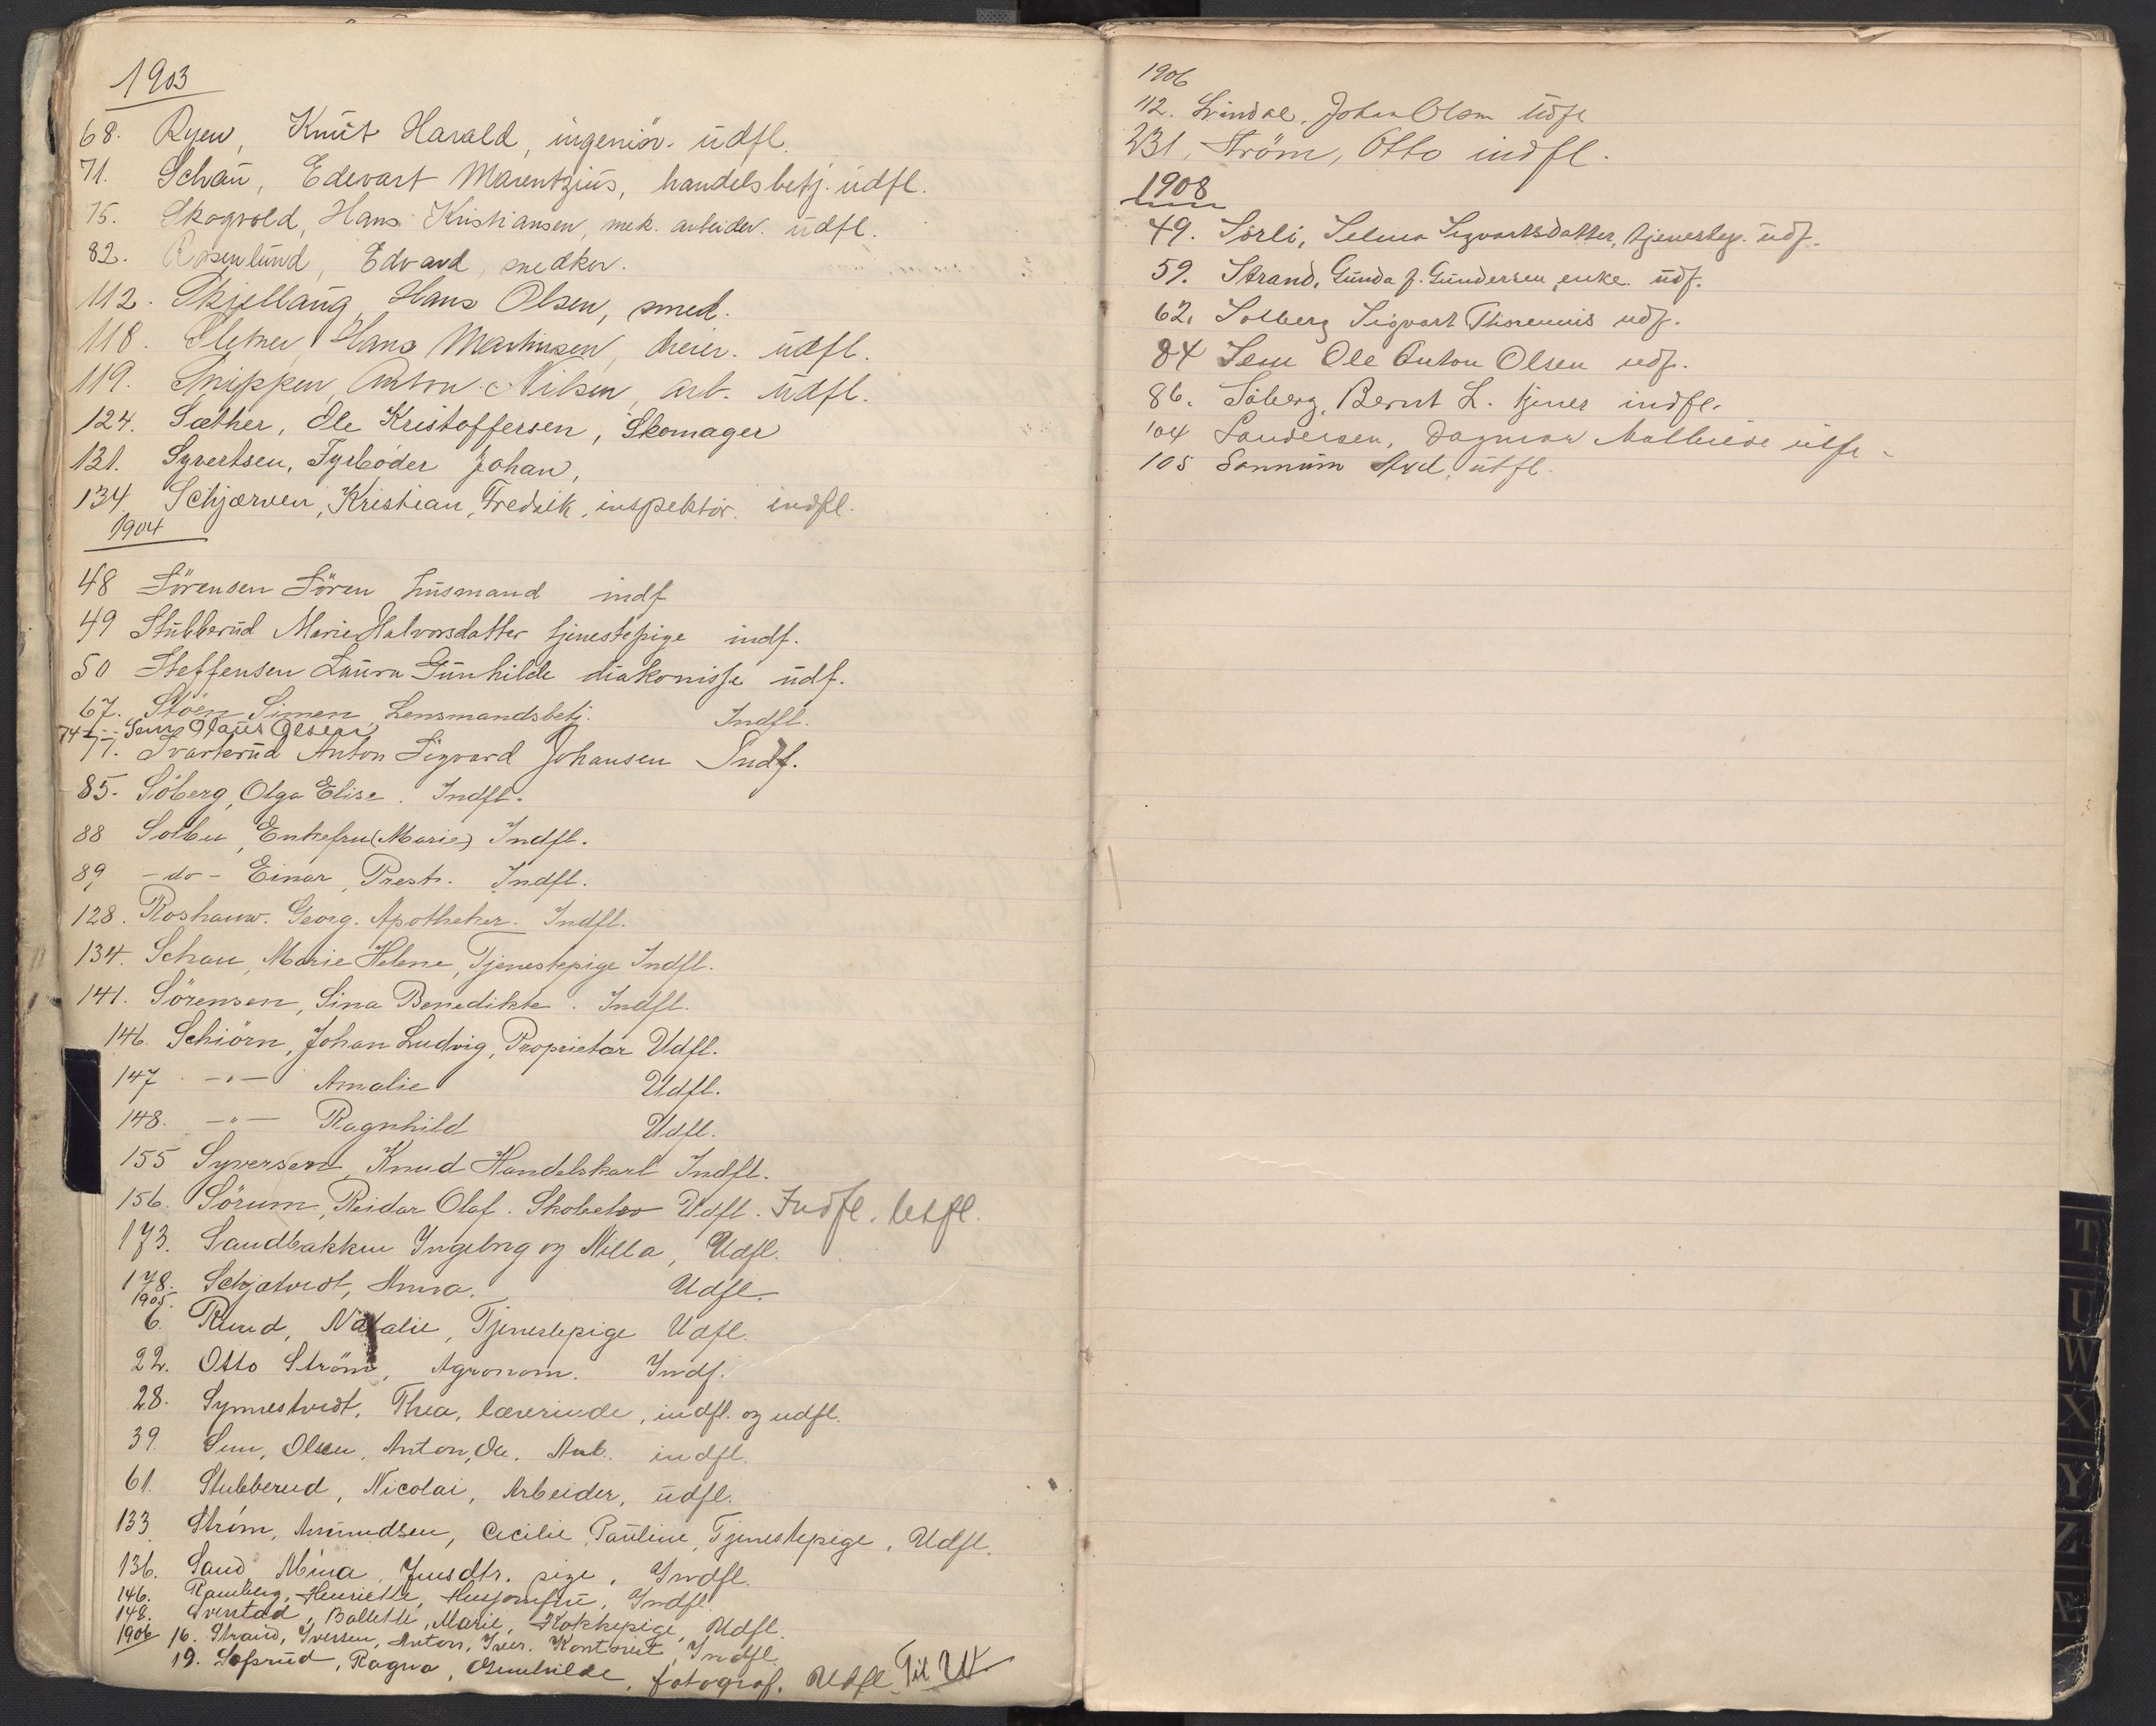 1903
68. Ryen, Knut Harald, ingeniör. udfl.
71. Schau, Edevart Marentzius, handelsbetj. udfl.
75. Skogvold, Hans Kristiansen, mek. arbeider. udfl.
82. Rosenlund, Edvard, snedker.
112. Skjellaug, Hans Olsen, smed.
118. Sletner, Hans Martinsen, udfl.
119. Snippen, Anton Nilsen, arb. udfl.
124. Sæther, Ole Kristoffersen, Skomager
131. Syvertsen, Fyrböder Johan,
134. Schjærven, Kristian, Fredrik, inspektör. indfl.
1904
48 Sörensen Sören husmand indf
49 Stubberud Marie Halvorsdatter tjenestepige indf.
50 Steffensen Laura Gunhilde diakonisse udf.
67. Stöen Simen, Lensmandsbetj. Indfl.
74 Sem Olaus Olsen
77. Svarterud Anton Sigvard Johansen Indf.
85. Söberg, Olga Elise. Indfl.
88 Solbu, Enkefru (Marie) Indfl.
89 - do - Einar, Prest. Indfl.
128. Roshauw. Georg. Apotheker. Indfl.
134. Schau, Marie Helene, Tjenestepige Indfl.
141. Sörensen, Sina Benedikte. Indfl.
146. Schiörn, Johan Ludvig, Proprietær Udfl.
147 -"- Amalie Udfl.
148. -"- Ragnhild Udfl.
155 Syversen, Knud Handelskarl Indfl.
156. Sörum, Reidar Olaf. Skoelev Udfl. Indfl. Utfl.
173. Sandbakken Ingebrg og Nilla, Udfl.
178. Schjatvedt, Anna. Udfl.
1905.
6. Ruud, Natalie, Tjenestepige Udfl.
22. Otto Ström, Agronom. Indf.
28. Synnestvedt, Thea, lærerinde, indfl. og udfl.
39. Sem, Olsen, Anton, Ole. Arb. indfl.
61. Stubberud, Nicolai, Arbeider, udfl.
133 Ström, Amundsen, Cecilie, Pauline, Tjenestepige, Udfl.
136. Sand, Mina, Jensdtr. pige, Indfl.
146. Ramberg, Henriette, Husjomfru, Indfl.
148. Sverstad, Bollette, Marie, Kokkepige, Udfl.
1906 16. Strand, Iversen, Anton, Iver. Kontorist, Indfl.
19. Sofsrud, Ragna, Gunhilde, fotograf. Udfl. Til W
1906
112. Svindal, Johan Olsen Udfl
231. Ström, Otto indfl.
1908
49. Sörli, Selma Segvartsdatter, tjenestep. udf.
59. Strand, Gunda f. Gundersen, enke. udf.
62. Solberg Sigvart Thorennis udf.
84 Sem Ole Anton Olsen udf.
86. Söberg, Bernt L. tjener indfl.
104 Sandersen, Dagmar Mathilde utfl.
105 Sannum utfl.
T
U
W
X
Y
Z